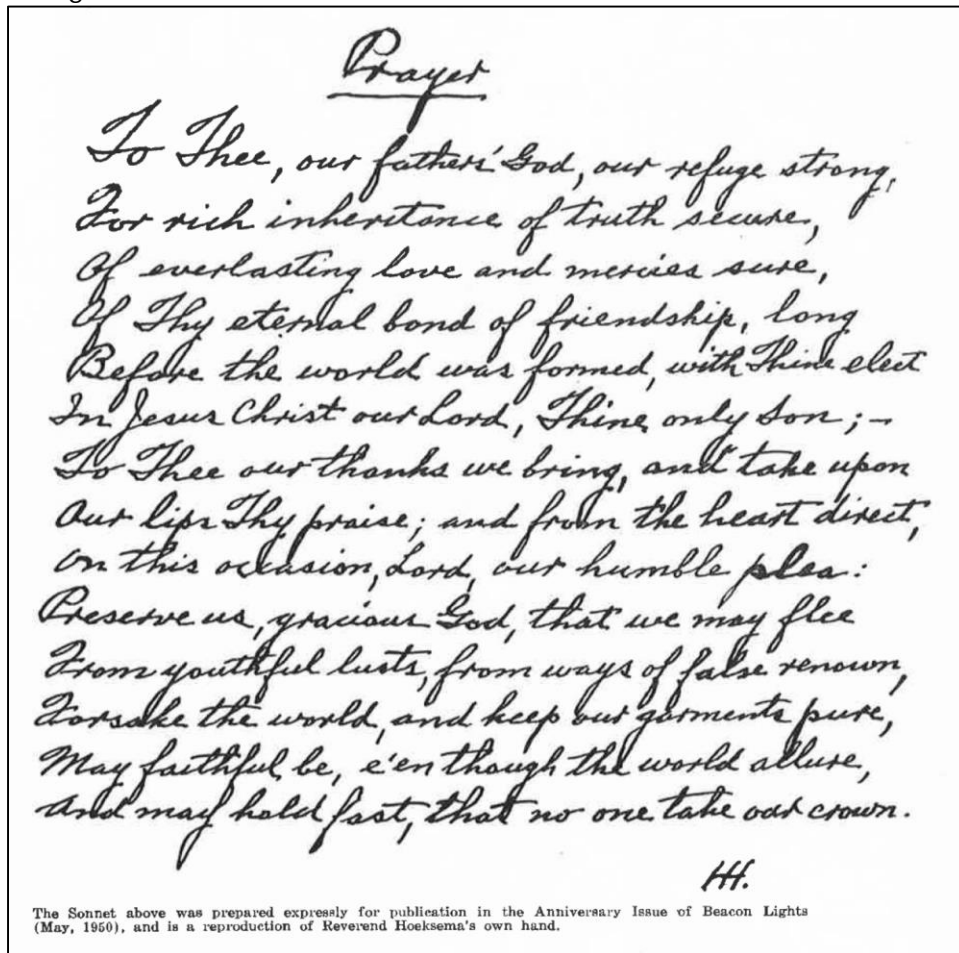 Prayer
To Thee, our fathers' God, our refuge strong,
For rich inheritance of truth secure,
Of everlasting love and mercies sure,
Of Thy eternal bond of friendship, long
Before the world was formed, with Thine elect
In Jesus Christ our Lord, Thine only Son; –
To Thee our thanks we bring, and take upon
Our lips Thy praise; and from the heart direct,
On this occasion, Lord, our humble plea:
Preserve us, gracious God, that we may flee
From youthful lusts, from ways of false renown,
Forsake the world, and keep our garments pure,
May faithful be, e'en though the world allure,
And may hold fast, that no one take our crown.
HH.
The Sonnet above was prepared expressly for publication in the Anniversary Issue of Beacon Lights
(May, 1950), and is a reproduction of Reverend Hoeksema's own hand.